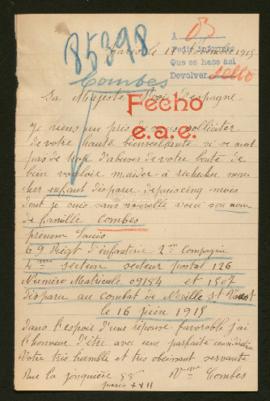 85398
A 03
Pedir informes
Que se hace así
Devolver sello
1915
Combes
Sa Majesté Roi d'Espagne
Fecho
e.a.e.
Je viens
de votre haute bienveillance si ce n'est
pas de trop d'abuser de votre bonté de
bien vouloir m'aider à
enfant disparu depuis cinq mois
dont je suis sans nouvelle voici son nom
de famille Combes
prénom Louis
69 Reigt d'infanterie 2me Compagnie
4me section secteur postal 126
Numéro Matricule 09154 et 1507
disparu au combat de Neville St Vaast
le 16 juin 1915
Dans l'espoir d'une réponse favorable j'ai
l'honneur d'être avec une parfaite considération
Votre très humble et très obéissant servante
Rue la jonquière 55 Mme Combes
paris XVII